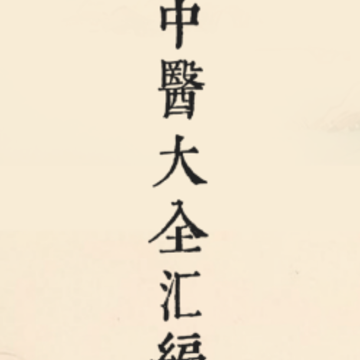 中醫大全汇編